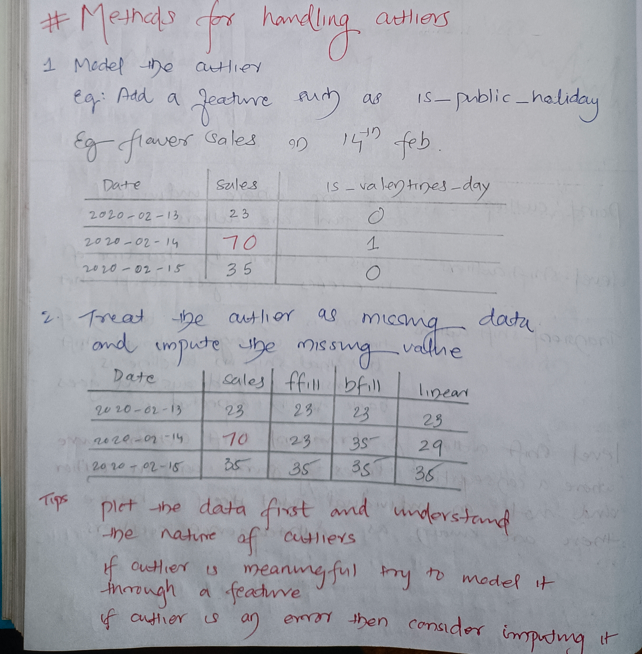 # Methods for handling outliers
1 Model the outlier
Eg: Add a feature such as is_public_holiday
Eg flower sales on 14th feb.
Date sales is_valentines_day
2020-02-13 23 0
2020-02-14 70 1
2020-02-15 35 0
2. Treat the outlier as missing data
and impute the missing value
Date sales ffill bfill linear
2020-02-13 23 23 23 23
2020-02-14 70 23 35 29
2020-02-15 35 35 35 35
Tips plot the data first and understand
the nature of outliers
if outlier is meaningful try to model it
through a feature
if outlier is an error then consider imputing it